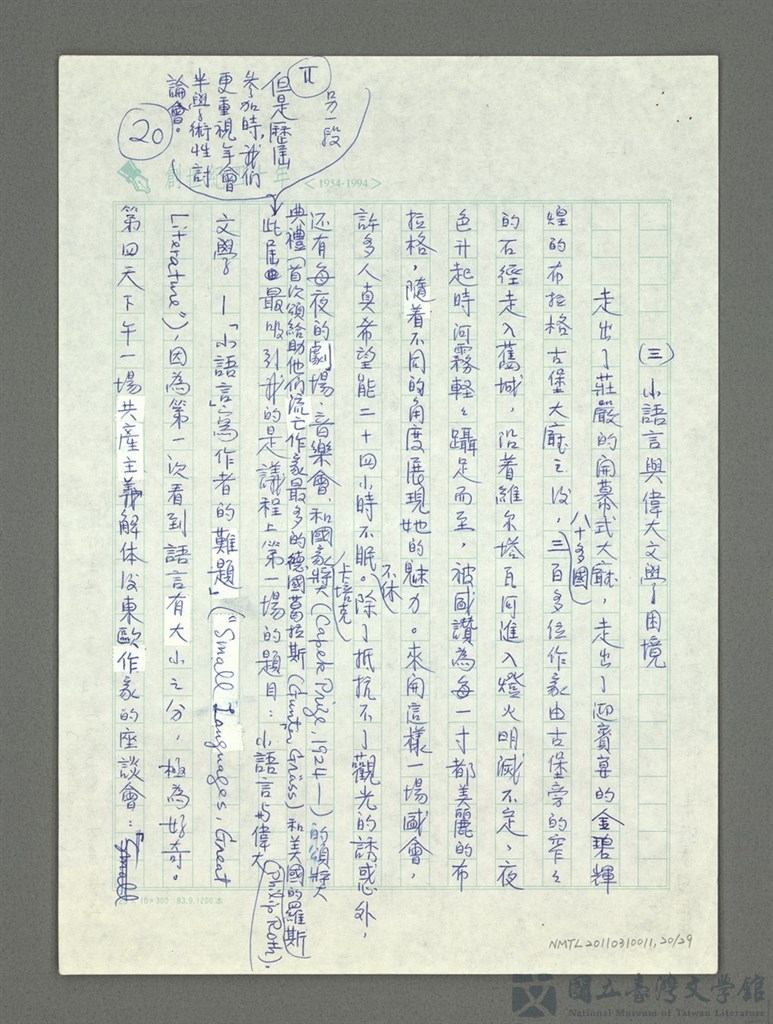 ⑳
Ⅱ
另一段
但是歷屆
參加時,我們
更重視年會
半學術性討
論會。
創世紀四十年 <1954-1994>
(三)小語言與偉大文學的困境
走出了莊嚴的開幕式大廳,走出了迎賓宴的金碧輝
煌的布拉格古堡大廳之後,八十多國三百多位作家由古堡旁的窄々
的石徑走入舊城,沿着維尔塔瓦河進入燈火明滅不定,夜
色升起時河霧輕々躡足而至,被盛讚為每一寸都美麗的布
拉格,隨着不同的角度展現她的魅力。來開這樣一場盛會,
許多人真希望能二十四小時不眠不休。除了抵抗不了觀光的誘惑外,
还有每夜的劇場、音樂會、和國家卡培克獎(Capek Prize, 1924—)的頒獎
典禮(首次頒給助他們流亡作家最多的德國葛拉斯(Günter Grass)和美國的羅斯(Philip Roth)。
此屆最吸引我的是議程上第一場的題目:小語言与偉大
文學—「小語言」寫作者的難題」("Small Languages, Great
Literature"),因為第一次看到語言有大小之分,極為好奇。
第四天下午一場共產主義解体後東歐作家的座談會:"Small
16×305 83.9.1200本
NMTL20110310011, 20/29
國立臺灣文學館
National Museum of Taiwan Literature